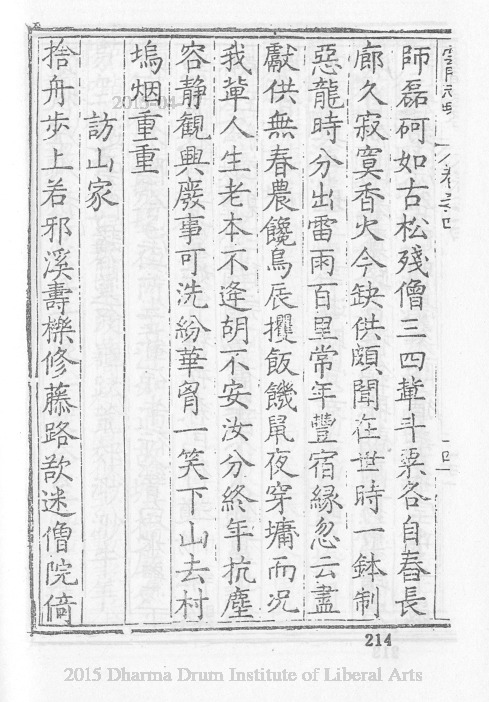 師磊砢如古松殘僧三四軰斗粟各自舂長
廊久寂寞香火今缺供頗聞在世時一鉢制
惡龍時分出雷雨百里常年豐宿緣忽云盡
獻供無春農饞鳥辰攫飯饑鼠夜穿墉而况
我軰人生老本不逢胡不安汝分終年抗塵
容静觀興廢事可洗紛華胷一笑下山去村
塢烟重重
訪山家
捨舟步上若邪溪壽櫟修藤路欲迷僧院倚
214
2015 Dharma Drum Institute of Liberal Arts